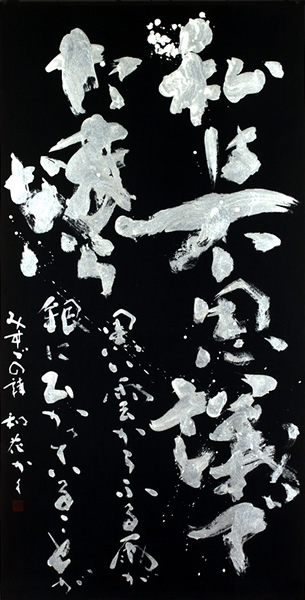 私は不思議で
たまらない
黒い雲からふる雨が
銀にひかっていることが
みすゞの詩 和花かく